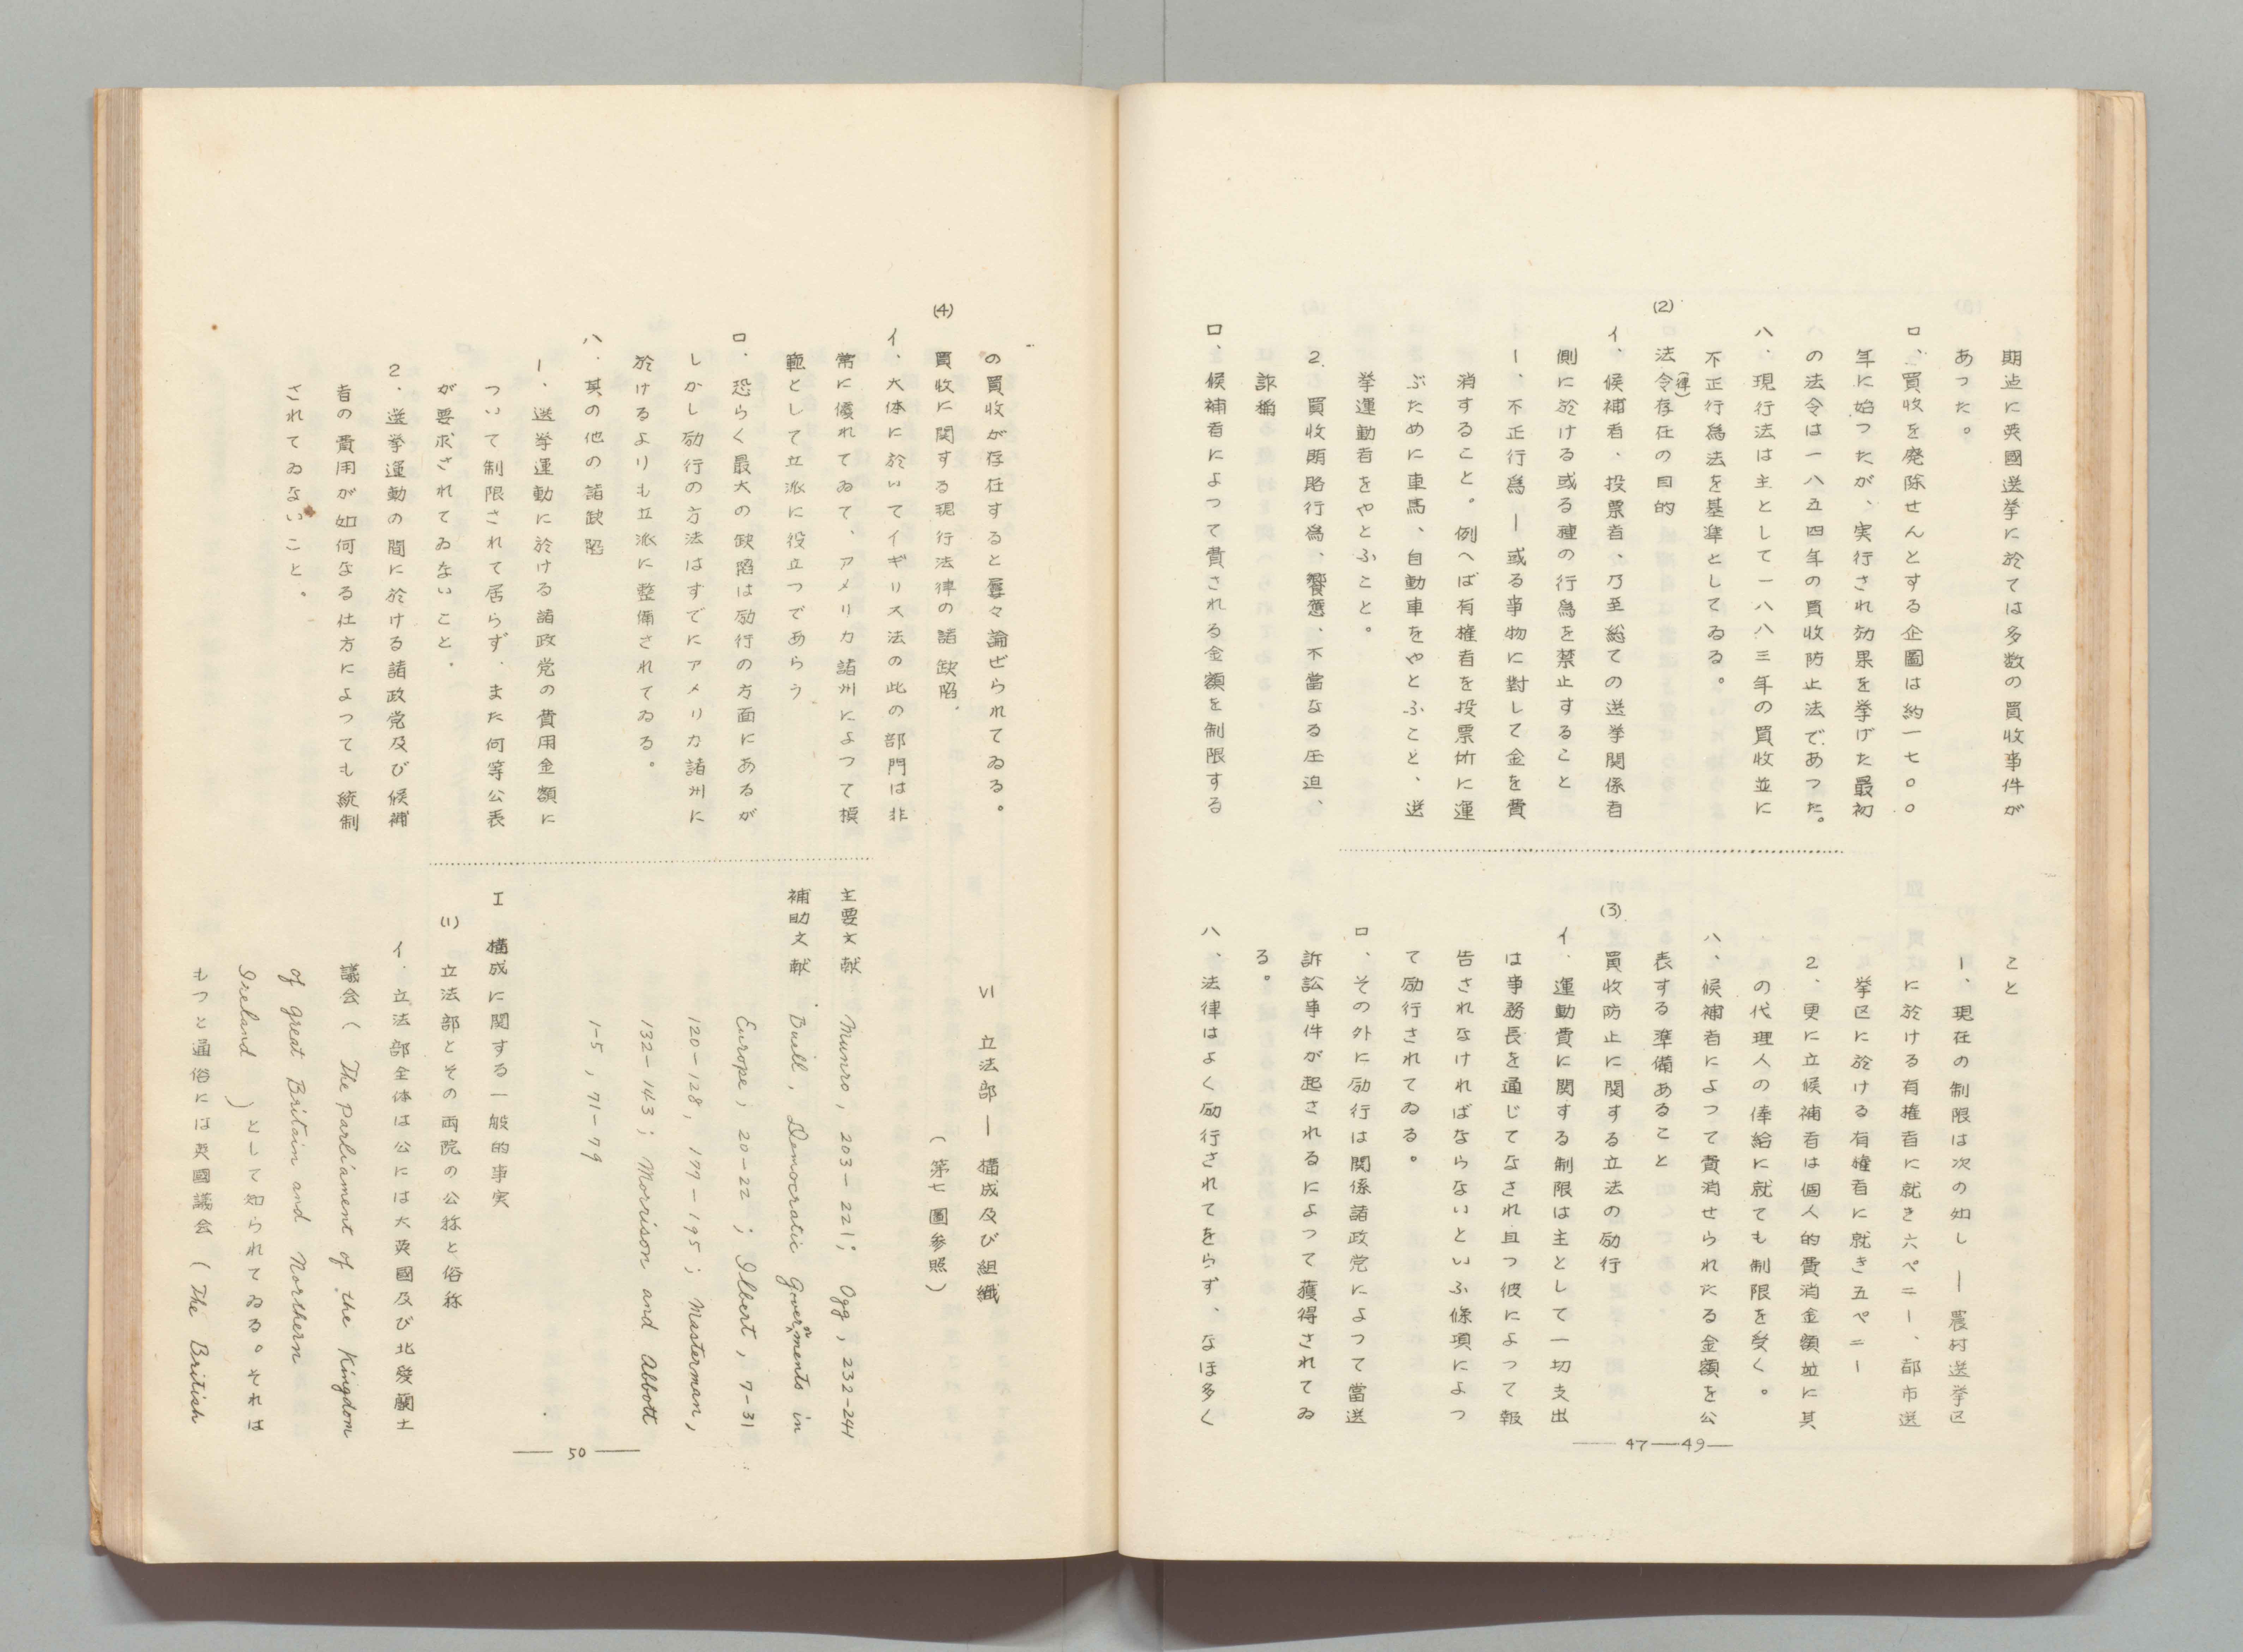 期迄に英國送挙に於ては多数の買收事件が
あつた。
ロ、買收を廃除せんとする企圖は約一七〇〇
年に始つたが、実行され効果を挙げた最初
の法令は一八五四年の買收防止法であつた。
ハ、現行法は主として一八八三年の買收並に
不正行為法を基準としてゐる。
(2) 法令(律)存在の目的
イ、候補者、投票者、乃至総ての送挙関係者
側に於ける或る種の行為を禁止すること
1、不正行為—或る事物に対して金を費
消すること。例へば有権者を投票所に運
ぶために車馬、自動車をやとふこと、送
挙運動者をやとふこと。
2、買收賄賂行為、饗應、不當なる圧迫、
詐稱
ロ、候補者によつて費される金額を制限する
こと
1、現在の制限は次の如し—農村送挙区
に於ける有権者に就き六ペニー、都市選
挙区に於ける有権者に就き五ペニー
2、更に立候補者は個人的費消金額並に其
の代理人の俸給に就ても制限を受く。
ハ、候補者によつて費消せられたる金額を公
表する準備あること
(3) 買收防止に関する立法の励行
イ、運動費に関する制限は主として一切支出
は事務長を通じてなされ且つ彼によつて報
告されなければならないといふ條項によつ
て励行されてゐる。
ロ、その外に励行は関係諸政党によつて當送
訴訟事件が起されるによつて獲得されてゐ
る。
ハ、法律はよく励行されてをらず、なほ多く
—47—49—
の買收が存在すると屡々論ぜられてゐる。
(4) 買收に関する現行法律の諸缺陷、
イ、大体に於いてイギリス法の此の部門は非
常に優れてゐて、アメリカ諸州によつて模
範として立派に役立つであらう
ロ、恐らく最大の缺陷は励行の方面にあるが
しかし励行の方法はすでにアメリカ諸州に
於けるよりも立派に整備されてゐる。
ハ、其の他の諸缺陷
1、送挙運動に於ける諸政党の費用金額に
ついて制限されて居らず、また何等公表
が要求されてゐないこと.
2、送挙運動の間に於ける諸政党及び候補
者の費用が如何なる仕方によつても統制
されてゐないこと。
VI 立法部—構成及び組織
(第七圖参照)
主要文献 Munro, 203-221; Ogg, 232-244
補助文献 Buell, Democratic Governments in
Europe, 20-22; Ilbert, 7-31
120-128, 177-195; Masterman,
132-143; Morrison and Abbott
1-5, 71-79
I 構成に関する一般的事実
(1) 立法部とその両院の公称と俗称
イ. 立法部全体は公には大英國及び北愛蘭土
議会( The Parliament of the Kingdom
of great Britain and Northern
Ireland )として知られてゐる。それは
もつと通俗には英國議会(The British
—50—